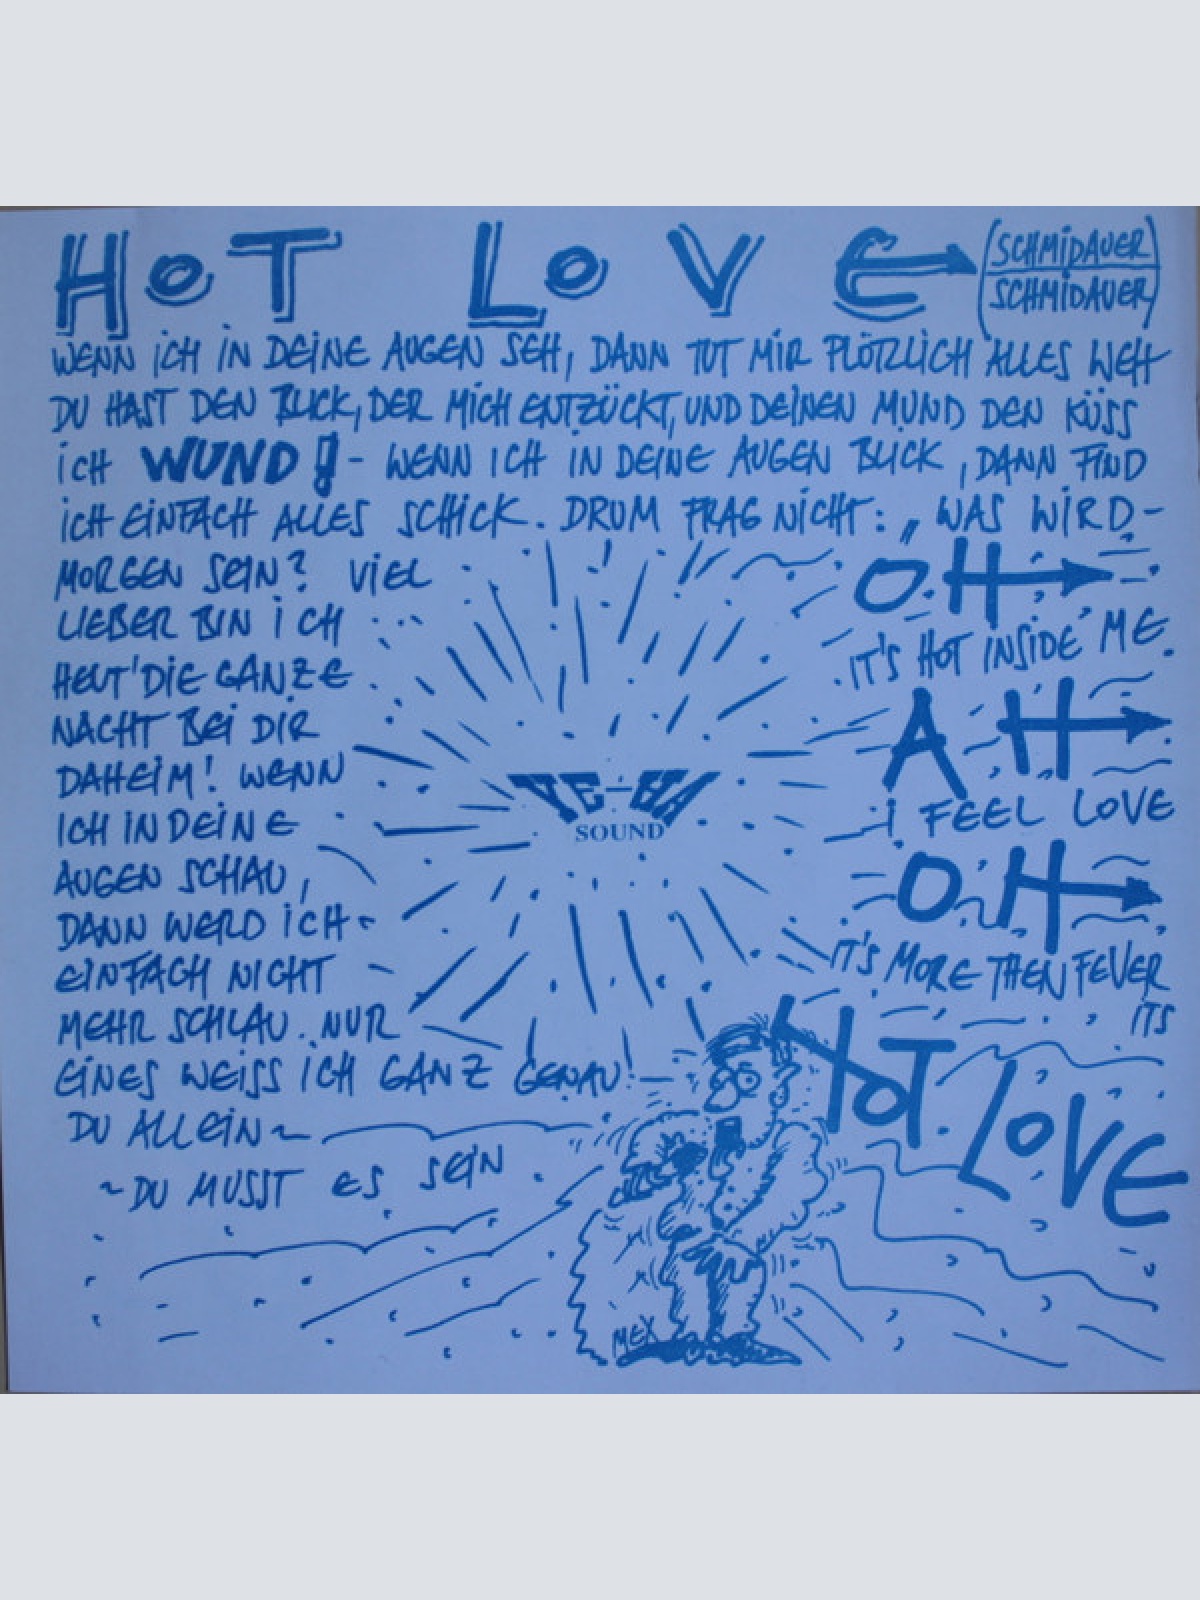 HOT LOVE
(SCHMIDAUER
SCHMIDAUER)
WENN ICH IN DEINE AUGEN SEH, DANN TUT MIR PLÖTZLICH ALLES WEH
DU HAST DEN BLICK, DER MICH ENTZÜCKT, UND DEINEN MUND DEN KÜSS
ICH WUND! - WENN ICH IN DEINE AUGEN BLICK, DANN FIND
ICH EINFACH ALLES SCHICK. DRUM FRAG NICHT: „WAS WIRD-
MORGEN SEIN? VIEL
LIEBER BIN ICH
HEUT' DIE GANZE
NACHT BEI DIR
DAHEIM! WENN
ICH IN DEINE
AUGEN SCHAU,
DANN WERD ICH
EINFACH NICHT
MEHR SCHLAU. NUR
EINES WEISS ICH GANZ GENAU!
DU ALLEIN~
~DU MUSST ES SEIN
YE-HA
SOUND
OH
IT'S HOT INSIDE ME.
AH
I FEEL LOVE
OH
IT'S MORE THEN FEVER
ITS
HOT LOVE
MEX